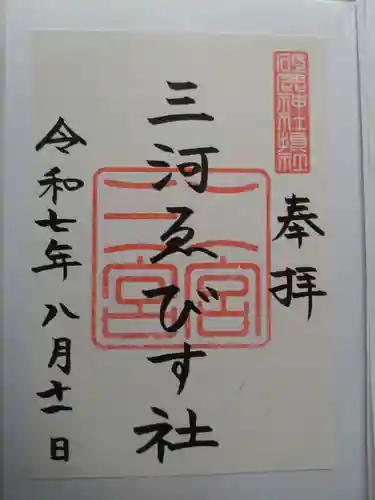 奉拝
三河ゑびす社
令和七年八月十一日
二宮